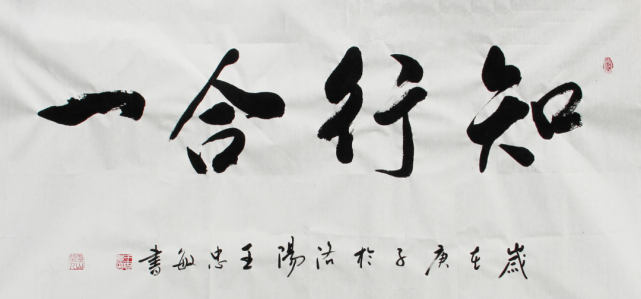 知行合一
歲在庚子於洛陽王忠敏書